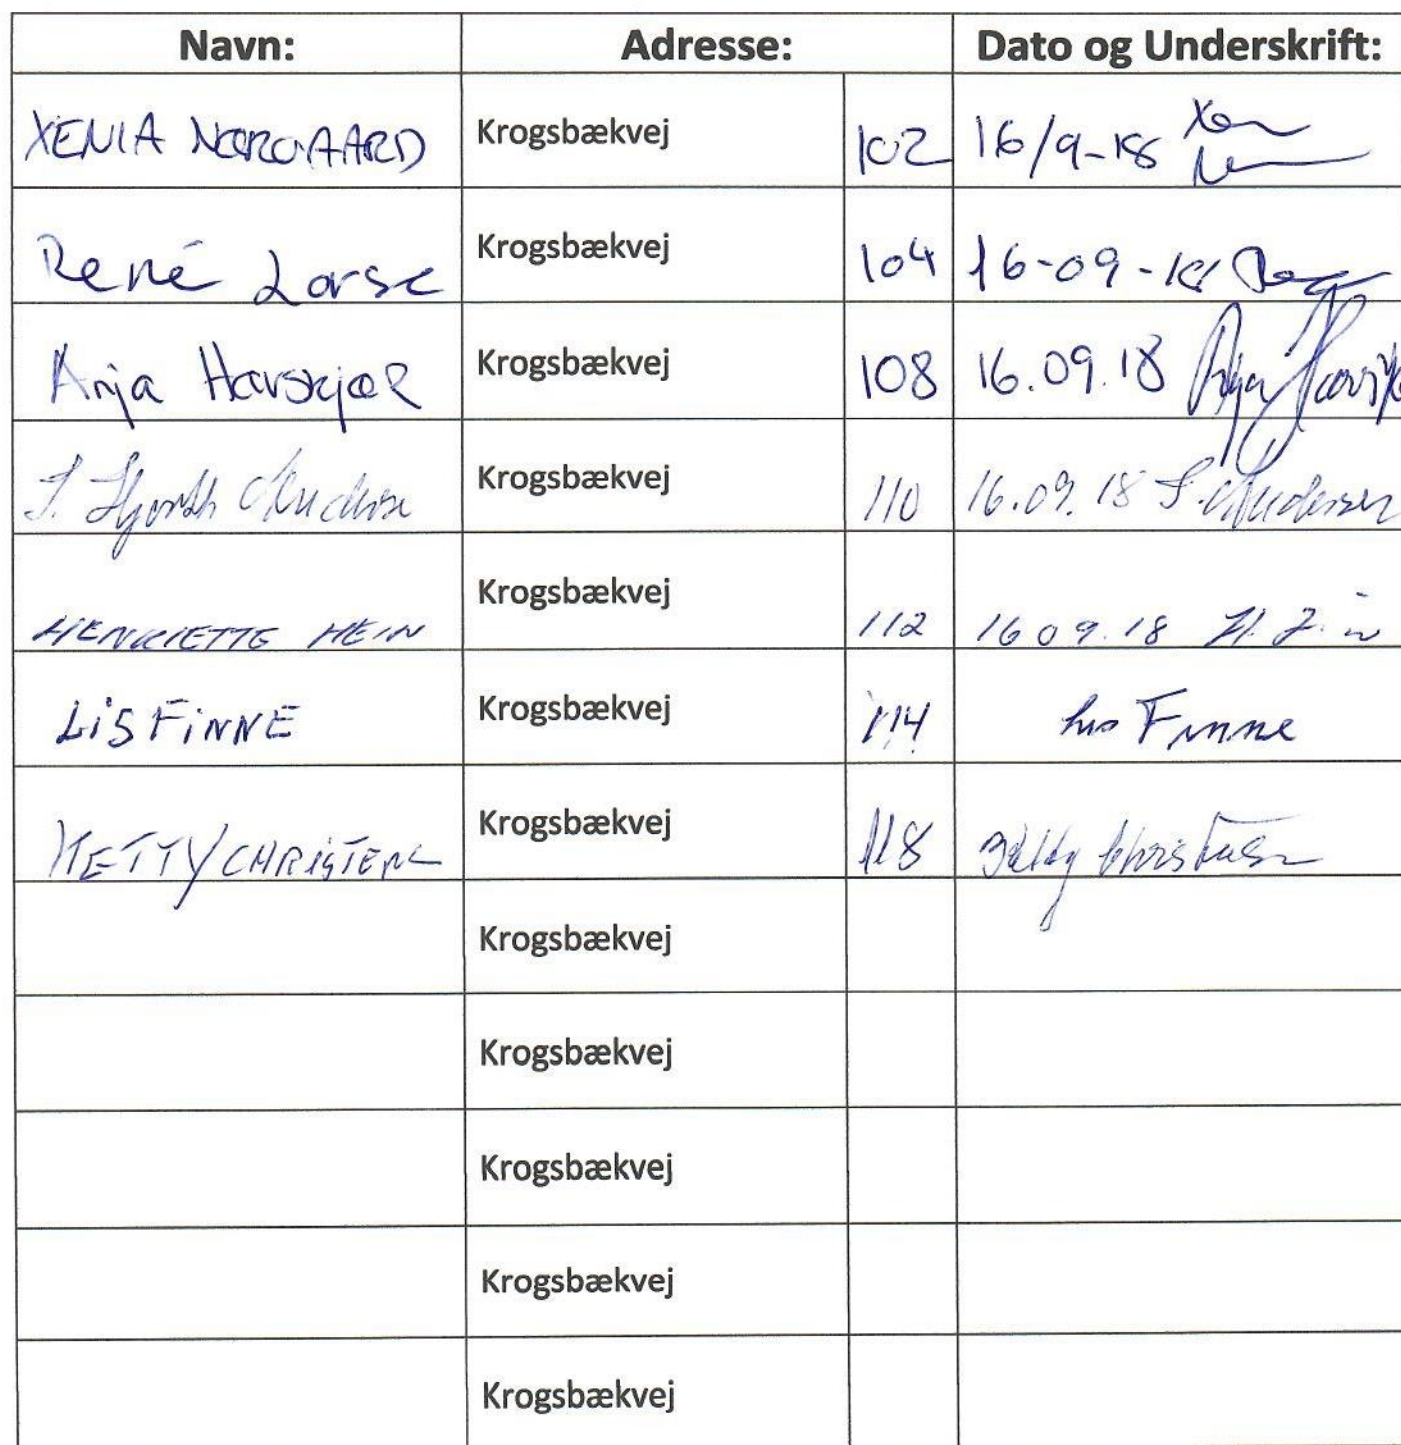 Navn: Adresse: Dato og Underskrift:
XENIA NØRGAARD Krogsbækvej 102 16/9-18
René Larse Krogsbækvej 104 16-09-18
Anja Havskjær Krogsbækvej 108 16.09.18 Anja
S. Hjorth Andersen Krogsbækvej 110 16.09.18 S. Andersen
HENRIETTE HEIN Krogsbækvej 112 16 09.18
LIS FINNE Krogsbækvej 114 Lis Finne
HETTY CHRISTENS Krogsbækvej 118 Hetty Christensen
Krogsbækvej
Krogsbækvej
Krogsbækvej
Krogsbækvej
Krogsbækvej